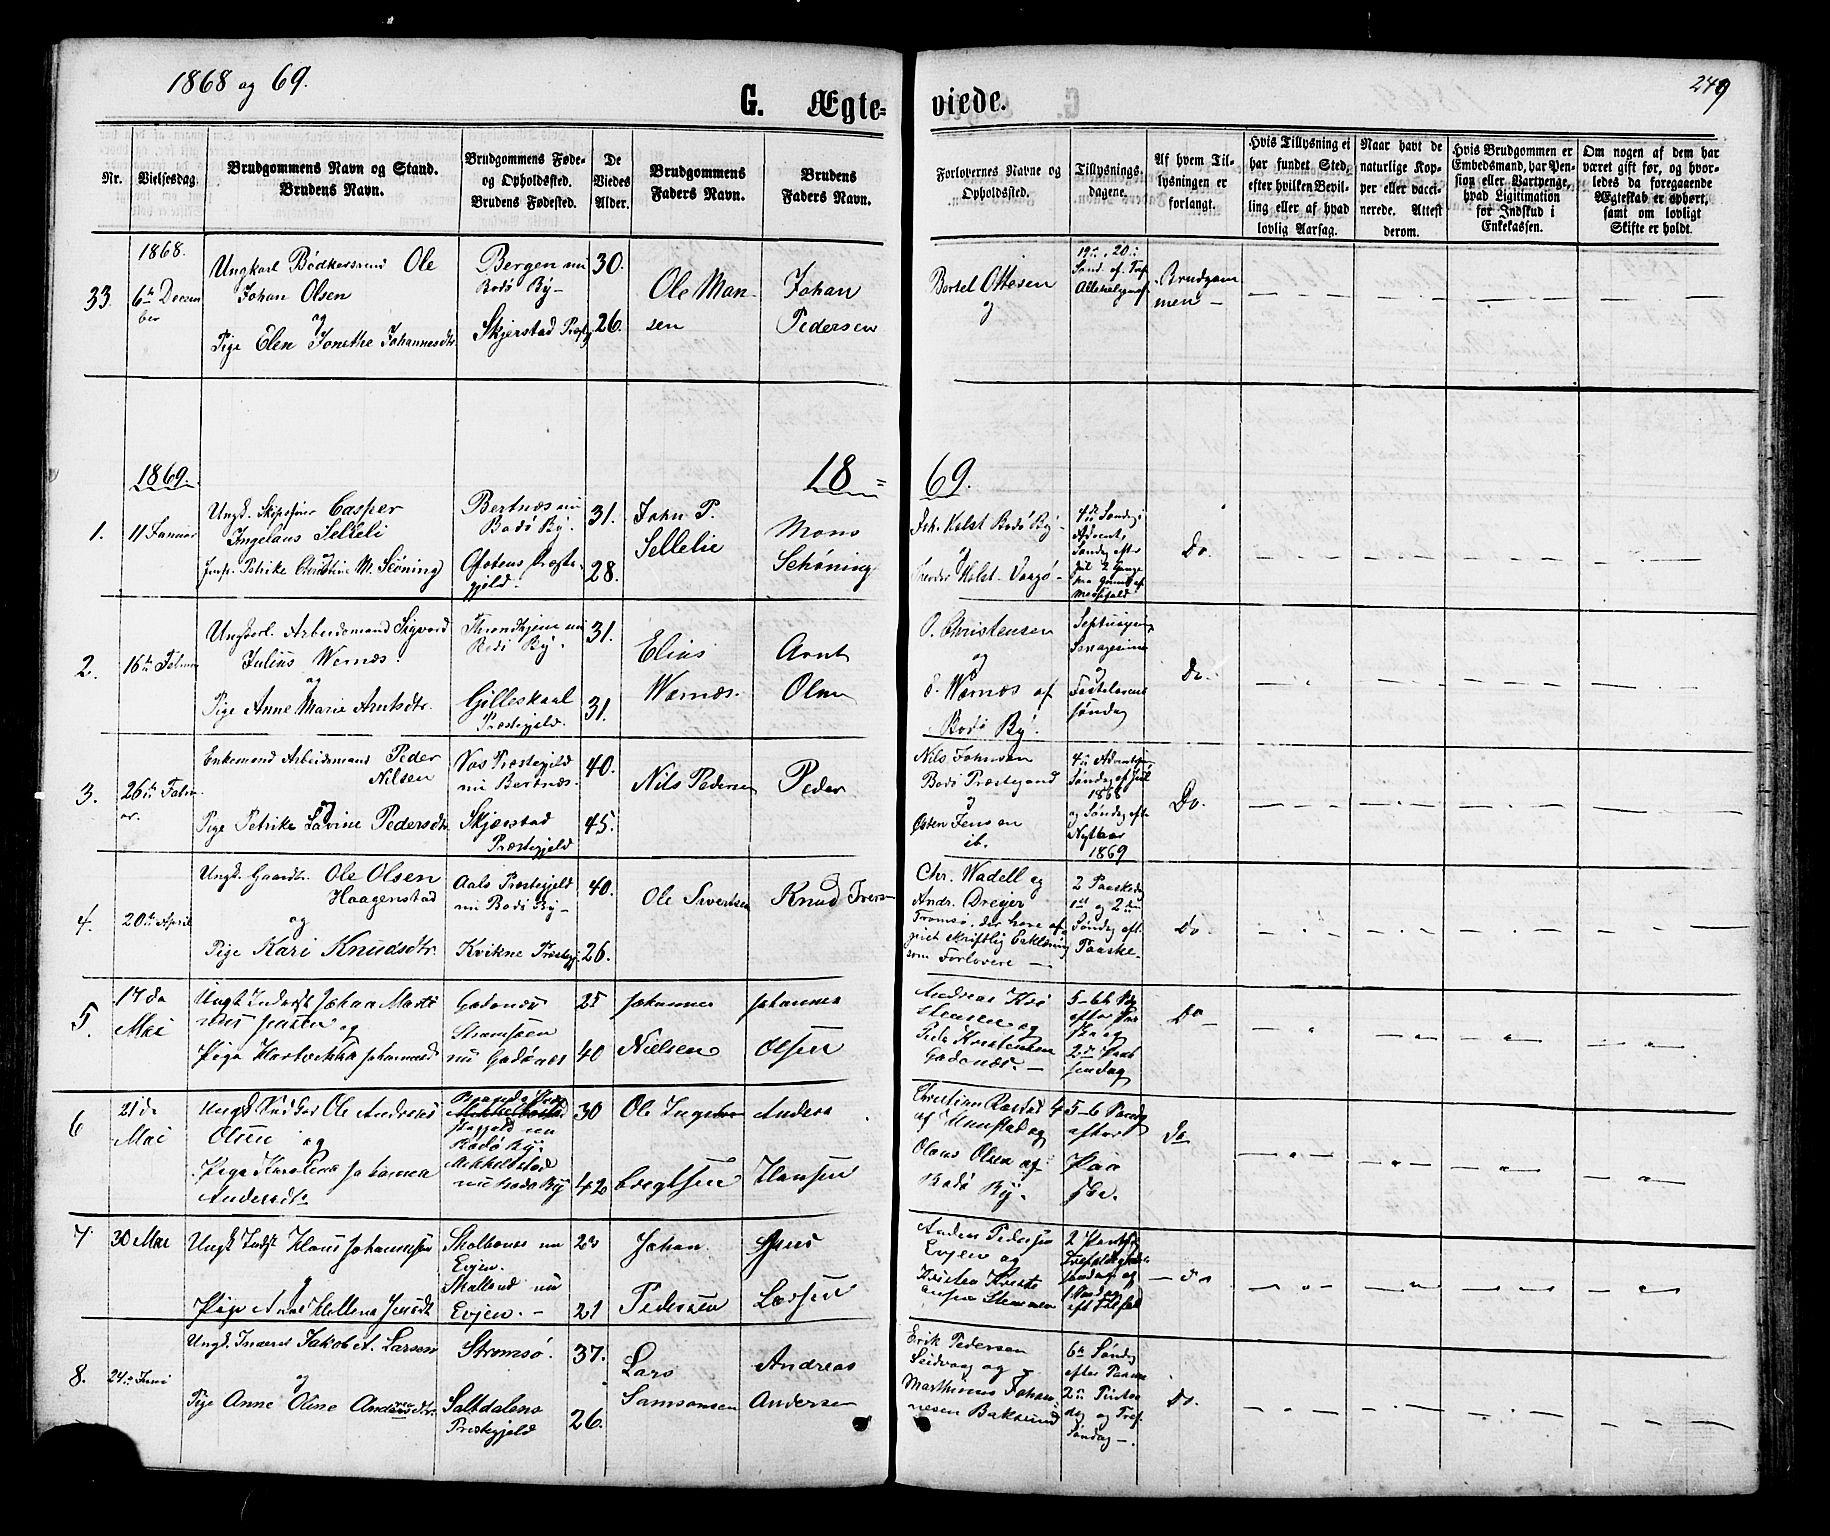 1868 og 69.
249
G. Ægte=
viede.
Nr.
Vielsesdag.
Brudgommens Navn og Stand.
Brudens Navn.
Brudgommens Føde-
og Opholdssted.
Brudens Fødested.
De
Viedes
Alder.
Brudgommens
Faders Navn.
Brudens
Faders Navn.
Forlovernes Navne og
Opholdssted.
Tillysnings-
dagene.
Af hvem Til-
lysningen er
forlangt.
Hvis Tillysning ei
har fundet Sted,
efter hvilken Bevil-
ling eller af hvad
lovlig Aarsag.
Naar havt de
naturlige Kop-
per eller vacci-
nerede. Attest
derom.
Hvis Brudgommen er
Embedsmand, har Pen-
sion eller Vartpenge,
hvad Legitimation
for Indskud i
Enkekassen.
Om nogen af dem har
været gift før, og hvor-
ledes da foregaaende
Ægteskab er ophørt,
samt om lovligt
Skifte er holdt.
33.
1868.
6te Decem
ber
Ungkarl Bødkersvend Ole
Johan Olsen
og
Pige Elen Jonethe Johannesdtr.
Bergen nu
Bodø By -
Skjerstad Præstg
30.
26.
Ole Man
sen
Johan
Pedersen
Bertel Ottesen
og
19de, 20de
Sond. ef. Tref
Allehelgensf
Brudgom
men -
1869.
18 =
69.
1.
11 Januar
Ungk. Skipsfører Casper
Ingelaus Selleli
og
Jomf. Petrike Christine M. Scöning
Bertnæs nu
Bodø By.
Ofotens Præste-
gjeld.
31.
28.
John P.
Sellelie
Mons
Schøning
Joh. Holst Bodø By
og
Holst Vaagø
4de Søndag i
Advent,
Søndag efter
Jul 2 Gange
Do.
2.
16de Februar
Ungkarl. Arbeidsmand Sigvard
Julius Wernæs.
og
Pige Anne Marie Arntsdtr.
Throndhjem nu
Bodø By.
Gilleskaal
Præstegjeld.
31.
31.
Elias
Wærnæs.
Arnt
Olsen
O. Christensen
og
E. Wærnæs af
Bodø By.
Septuages
Sexagesima
og
Fastelavens
søndag
Do.
3.
26de Febru
ar.
Enkemand Arbeidsmand Peder
Nilsen
og
Pige Petrike Lovine Pedersdtr
Vos Præstegjeld
nu Bertnæs
Skjærstad
Præstegjeld
40.
45.
Nils Pedersen
Peder
Nils Johnsen
Bodø Præstegaard
og
Østen Jensen
ib.
4de Advents
Søndag ef Jul
1868
og Søndag eft
Nytaar
1869
Do.
4.
20de April
Ungk. Gaardbr. Ole Olsen
Haagenstad
og
Pige Kari Knudsdtr.
Aals Præstegjeld
nu Bodø By -
Kvikne Præstegj
40.
26.
Ole Sivertsen
Knud Iversen
Chr. Wadell og
Andr. Dreyer
Tromsø, der have af-
givet skriftlig Erklæring
som Forlovere -
2 Paaskedag
1ste og 2den
Søndag eft
Paaske -
Do.
5.
17 de
Mai
Ungk Inderst Johan Marti
og
Pige Hartvikka Johannesd
Godønæs
Strømsøen
nu Godønæs
25
40
Johannes
Nielsen
Johannes
Olsen
Andreas
Stensen og
Peder Kristensen
Godønæs. -
5-6te
efter Paa
ske og
2de Pints
søndag
Do -
6
21 de
Mai
Ungk Ole Andreas
Olsen og
Pige Karoline Johanna
Andersdtr
stegjeld nu
Bodø By.
Mikkelstad
nu Bodø By
30
42
Ole Ingebr
bregtsen
Anders
Hansen
Christian
af Hunstad og
Olaus Olsen af
Bodø By.
5-6 Sondg
efter
Paa
ske.
Do
7
30 Mai
Ungk Indst Klaus Johannesen
og
Pige Anne Hellena Jensdt
Skalbones nu
Evjen.
Skalland nu
Evjen. -
23
21
Johan
Pedersen
Jens
Larsen
Anders Pedersen
Evjen og
Kristen Kristi
ansen
2 Pintsdg
søndag og
1 Søndag
eft
- do
8.
24de Juni
Ungk. Inderst Jakob A. Larsen
og
Pige Anne Oline Andersdtr.
Strømsø.
Saltdalens
Præstegjeld
37.
26.
Lars
Samsonsen
Andreas
Andersen
Erik Pedersen
Seidvaag og
Marthinus Johan
nesen Baksund
6te Søndag
efter Paaske
2den Pintse
dag og Tref.
Søndag -.
Do.